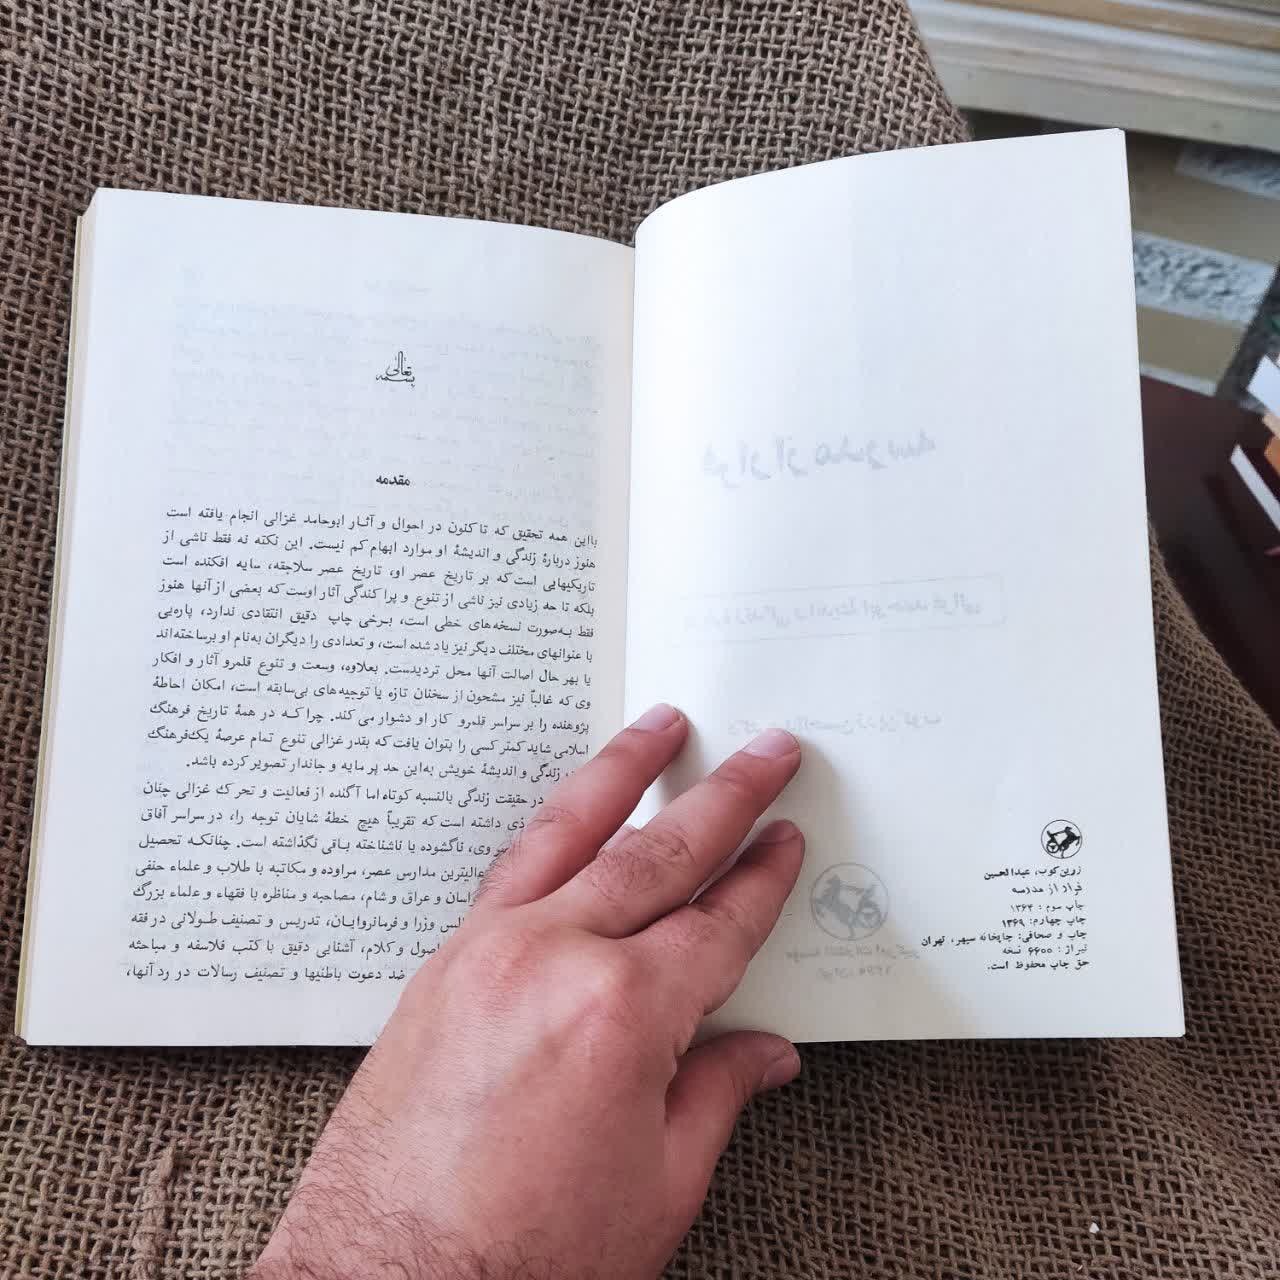 زرین کوب، عبدالحسین
فرار از مدرسه
چاپ سوم: ۱۳۶۴
چاپ چهارم: ۱۳۶۹
چاپ و صحافی: چاپخانه سپهر، تهران
تیراژ: ۶۶۰۰ نسخه
حق چاپ محفوظ است.
بسمه تعالی
مقدمه
بااین همه تحقیق که تا کنون در احوال و آثار ابوحامد غزالی انجام یافته است
هنوز دربارهٔ زندگی و اندیشهٔ او موارد ابهام کم نیست. این نکته نه فقط ناشی از
تاریکیهایی است که بر تاریخ عصر او، تاریخ عصر سلاجقه، سایه افکنده است
بلکه تا حد زیادی نیز ناشی از تنوع و پراکندگی آثار اوست که بعضی از آنها هنوز
فقط به‌صورت نسخه‌های خطی است، برخی چاپ دقیق انتقادی ندارد، پاره‌یی
با عنوانهای مختلف دیگر نیز یاد شده است، و تعدادی را دیگران به‌نام او برساخته‌اند
یا بهر حال اصالت آنها محل تردیدست. بعلاوه، وسعت و تنوع قلمرو آثار و افکار
وی که غالباً نیز مشحون از سخنان تازه یا توجیه‌های بی‌سابقه است، امکان احاطهٔ
پژوهنده را بر سراسر قلمرو کار او دشوار می‌کند. چرا که در همهٔ تاریخ فرهنگ
اسلامی شاید کمتر کسی را بتوان یافت که بقدر غزالی تنوع تمام عرصهٔ یک‌فرهنگ
زندگی و اندیشهٔ خویش به‌این حد پر مایه و جاندار تصویر کرده باشد.
در حقیقت زندگی بالنسبه کوتاه اما آگنده از فعالیت و تحرک غزالی چنان
داشته است که تقریباً هیچ خطهٔ شایان توجه را، در سراسر آفاق
وی، ناگشوده یا ناشناخته باقی نگذاشته است. چنانکه تحصیل
عالیترین مدارس عصر، مراوده و مکاتبه با طلاب و علماء حنفی
و عراق و شام، مصاحبه و مناظره با فقهاء و علماء بزرگ
وزرا و فرمانروایان، تدریس و تصنیف طولانی در فقه
و کلام، آشنایی دقیق با کتب فلاسفه و مباحثه
ضد دعوت باطنیها و تصنیف رسالات در رد آنها،